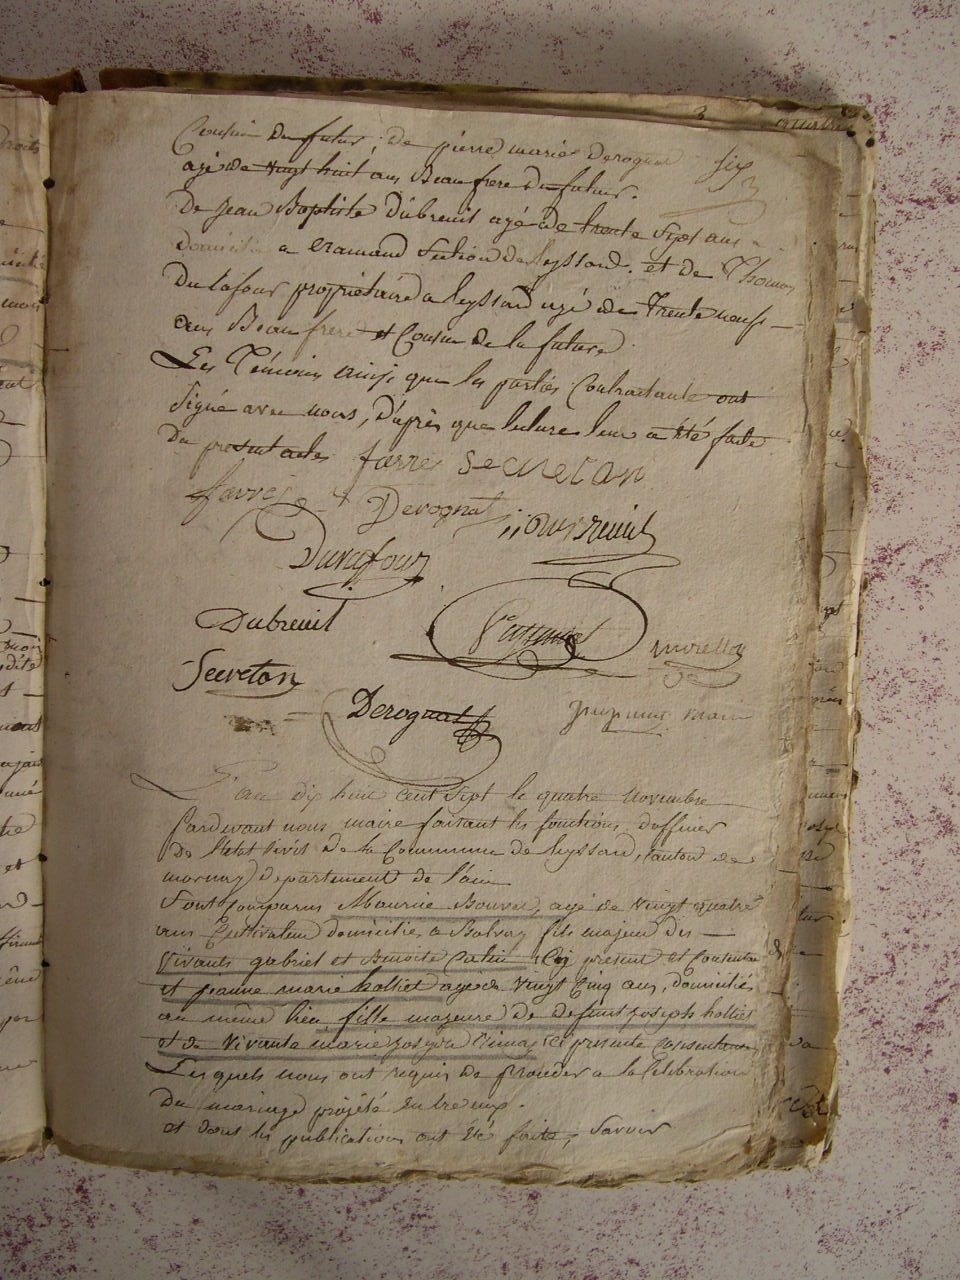 Cousin du futur, de pierre marie Derognat six
agé de vingt huit ans Beau frere du futur.
De Jean Baptiste Dubreuil agé de trente sept ans
domicilié a Cramand section de leyssard. et de Thomas
Dulafour propriétaire a leyssard agé de trente neuf
ans Beau frere et Cousin de la future.
Les Témoins ainsi que les parties Contractante ont
signé avec nous, D'après que lecture leur a été faite
Du present acte farre secretan
farre Derognat Dubreuil
Durafour
Dubreuil
Secretan
Derognat maire
L'an dix huit cent sept le quatre novembre
Pardevant nous maire faisant les fonctions d'officier
De l'etat civil De la Commune de leyssard, canton de
mornay département de l'ain
Sont comparus Maurice Bouvet, agé de vingt quatre
ans Cultivateur domicilié a Balvay fils majeur des
vivants gabriel et Benoite Catin Cy present et consentant
et jeanne marie holliot agée de vingt Cinq ans, domiciliée
au même lieu fille majeure de defunt joseph holliot
et de vivante marie josephe ici presente consentante
Lesquels nous ont requis de proceder a la Celebration
Du mariage projété entre eux.
et dont les publications ont été faite, Savoir